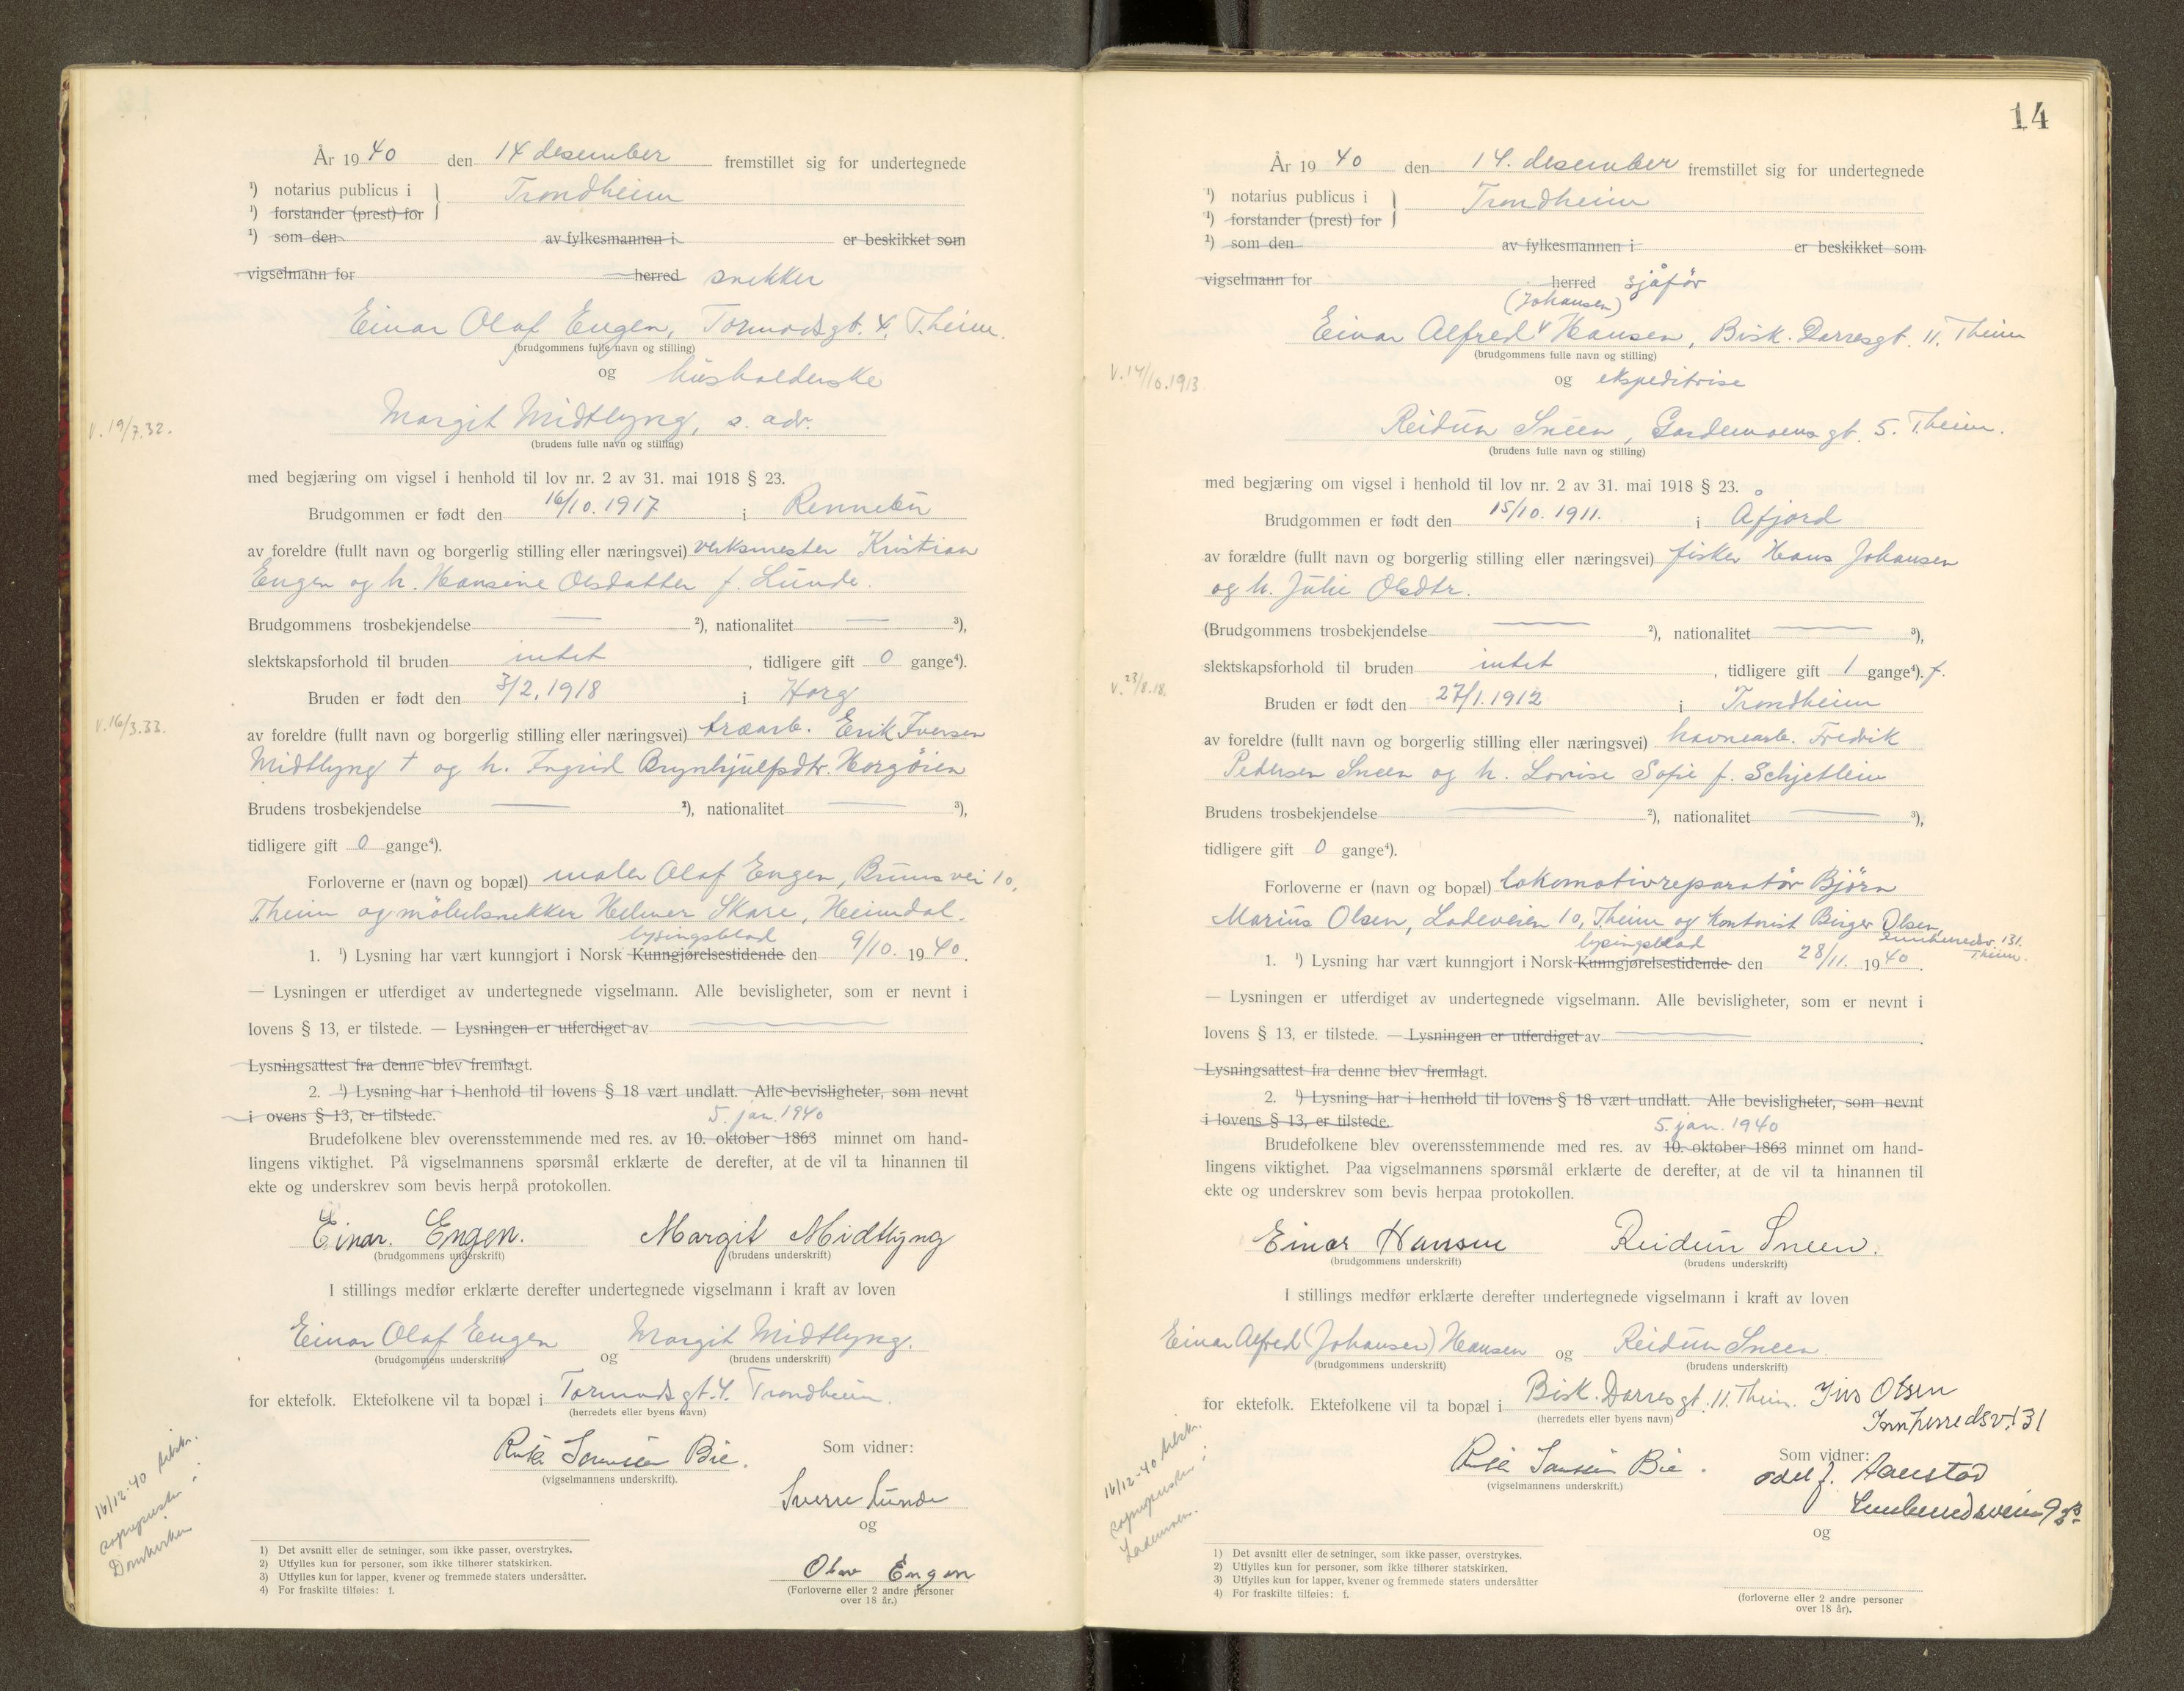 År 1940 den 14 desember fremstillet sig for undertegnede
¹) notarius publicus i } Trondheim
¹) forstander (prest) for
¹) som den av fylkesmannen i er beskikket som
vigselmann for herred snekker
Einar Olaf Engen, Tormodsgt. 4. T.heim.
(brudgommens fulle navn og stilling)
og husholderske
Margit Midtlyng, s. adr.
V. 19/7.32.
(brudens fulle navn og stilling)
med begjæring om vigsel i henhold til lov nr. 2 av 31. mai 1918 § 23.
Brudgommen er født den 16/10. 1917 i Rennebu
av foreldre (fullt navn og borgerlig stilling eller næringsvei) verksmester Kristian
Engen og h. Hansine Olsdatter f. Lunde.
Brudgommens trosbekjendelse — ²), nationalitet — ³),
slektskapsforhold til bruden intet, tidligere gift 0 gange⁴).
Bruden er født den 3/2. 1918 i Horg
V. 16/3.33.
av foreldre (fullt navn og borgerlig stilling eller næringsvei) træarb. Erik Iversen
Midtlyng † og h. Ingrid Brynhjulfsdtr. Horgöien
Brudens trosbekjendelse — ²), nationalitet — ³),
tidligere gift 0 gange⁴).
Forloverne er (navn og bopæl) maler Olaf Engen, Bruns vei 10,
T.heim og möbelsnekker Helmer Skare, Heimdal.
lysingsblad
1. ¹) Lysning har vært kunngjort i Norsk Kunngjørelsestidende den 9/10. 1940.
— Lysningen er utferdiget av undertegnede vigselmann. Alle bevisligheter, som er nevnt i
lovens § 13, er tilstede. — Lysningen er utferdiget av —
Lysningsattest fra denne blev fremlagt.
2. ¹) Lysning har i henhold til lovens § 18 vært undlatt. Alle bevisligheter, som nevnt
i ovens § 13, er tilstede. 5. jan. 1940
Brudefolkene blev overensstemmende med res. av 10. oktober 1863 minnet om hand-
lingens viktighet. På vigselmannens spørsmål erklærte de derefter, at de vil ta hinannen til
ekte og underskrev som bevis herpå protokollen.
Einar. Engen. Margit Midtlyng
(brudgommens underskrift) (brudens underskrift)
I stillings medfør erklærte derefter undertegnede vigselmann i kraft av loven
Einar Olaf Engen og Margit Midtlyng.
(brudgommens underskrift) (brudens underskrift)
for ektefolk. Ektefolkene vil ta bopæl i Tormodsgt. 4. Trondheim.
(herredets eller byens navn)
Bie.
(vigselmannens underskrift).
Som vidner:
Sverre Lunde
og
Olav Engen
(Forloverne eller 2 andre personer
over 18 år.)
16/12-40
sognepresten i
Domkirken
1) Det avsnitt eller de setninger, som ikke passer, overstrykes.
2) Utfylles kun for personer, som ikke tilhører statskirken.
3) Utfylles kun for lapper, kvener og fremmede staters undersåtter.
4) For fraskilte tilføies: f.
14
År 1940 den 14. desember fremstillet sig for undertegnede
¹) notarius publicus i } Trondheim
¹) forstander (prest) for
¹) som den av fylkesmannen i er beskikket som
vigselmann for herred sjåför
(Johansen)
Einar Alfred V Hansen, Bisk. Darresgt. 11. T.heim
(brudgommens fulle navn og stilling)
V. 14/10.1913
og ekspeditrise
Reidun Sneen, Gardemoensgt. 5. T.heim.
(brudens fulle navn og stilling)
med begjæring om vigsel i henhold til lov nr. 2 av 31. mai 1918 § 23.
Brudgommen er født den 15/10. 1911. i Åfjord
av forældre (fullt navn og borgerlig stilling eller næringsvei) fisker Hans Johansen
og h. Julie Olsdtr.
(Brudgommens trosbekjendelse — ²), nationalitet — ³),
slektskapsforhold til bruden intet, tidligere gift 1 gange⁴). f.
V. 23/8.18.
Bruden er født den 27/1. 1912 i Trondheim
av foreldre (fullt navn og borgerlig stilling eller næringsvei) havnearb. Fredrik
Pedersen Sneen og h. Lovise Sofie f. Schjetlein
Brudens trosbekjendelse — ²), nationalitet — ³),
tidligere gift 0 gange⁴).
Forloverne er (navn og bopæl) lokomotivreparatör Björn
Marius Olsen, Ladeveien 10, T.heim og kontorist Birger Olsen,
Innherredsv. 131.
T.heim.
lysingsblad
1. ¹) Lysning har vært kunngjort i Norsk Kunngjørelsestidende den 28/11. 1940.
— Lysningen er utferdiget av undertegnede vigselmann. Alle bevisligheter, som er nevnt i
lovens § 13, er tilstede. — Lysningen er utferdiget av —.
Lysningsattest fra denne blev fremlagt.
2. ¹) Lysning har i henhold til lovens § 18 vært undlatt. Alle bevisligheter, som nevnt
i lovens § 13, er tilstede. 5. jan. 1940
Brudefolkene blev overensstemmende med res. av 10. oktober 1863 minnet om hand-
lingens viktighet. Paa vigselmannens spørsmål erklærte de derefter, at de vil ta hinannen til
ekte og underskrev som bevis herpaa protokollen.
Einar Hansen Reidun Sneen.
(brudgommens underskrift) (brudens underskrift)
I stillings medfør erklærte derefter undertegnede vigselmann i kraft av loven
Einar Alfred (Johansen) Hansen og Reidun Sneen.
(brudgommens underskrift) (brudens underskrift)
for ektefolk. Ektefolkene vil ta bopæl i Bisk. Darresgt. 11. T.heim.
(herredets eller byens navn)
Olsen
Innherredsv. 131
Bie.
(vigselmannens underskrift.)
Som vidner:
Odel J. Aanestad
og
(forloverne eller 2 andre personer
over 18 år).
16/12-40
sognepresten i
Lademoen.
1) Det avsnitt eller de setninger, som ikke passer, overstrykes.
2) Utfylles kun for personer, som ikke tilhører statskirken.
3) Utfylles kun for lapper, kvener og fremmede staters undersåtter
4) For fraskilte tilføies: f.